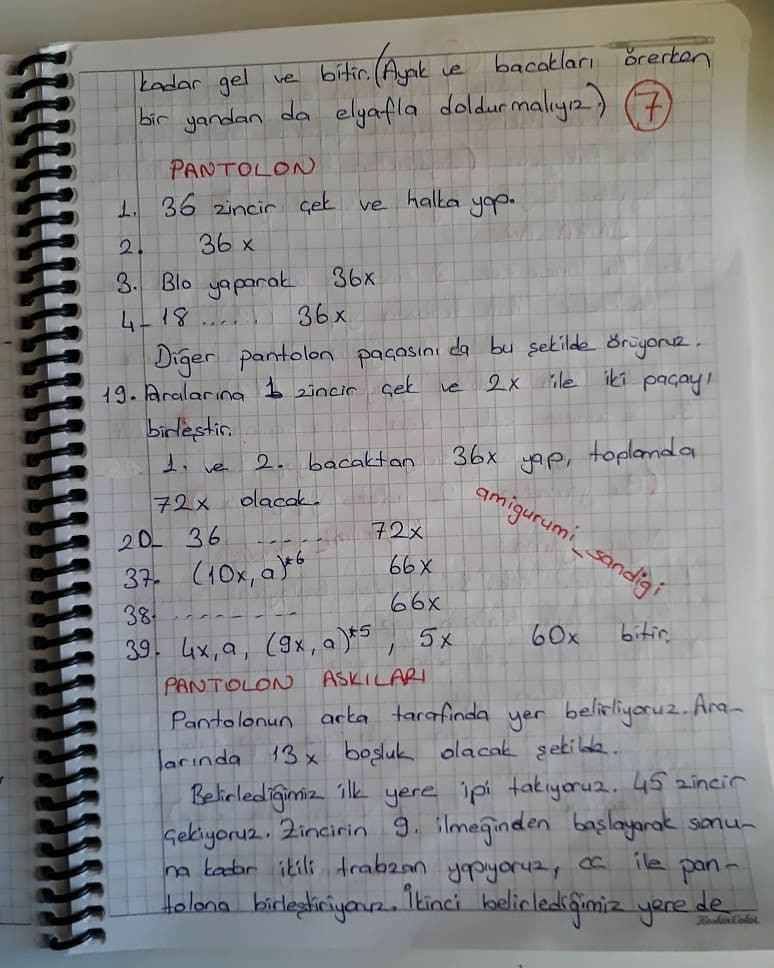 kadar gel ve bitir. (Ayak ve bacakları örerken
bir yandan da elyafla doldurmalıyız.) 7
PANTOLON
1. 36 zincir çek ve halka yap.
2. 36 x
3. Blo yaparak 36x
4_ 18 ...... 36x
Diğer pantolon paçasını da bu şekilde örüyoruz.
19. Aralarına 1 zincir çek ve 2x ile iki paçayı
birleştir.
1. ve 2. bacaktan 36x yap, toplamda
72x olacak.
20_ 36 ...... 72x
amigurumi_sandigi
37. (10x, a)*6 66x
38. ........ 66x
39. 4x, a, (9x, a)*5, 5x 60x bitir.
PANTOLON ASKILARI
Pantolonun arka tarafında yer belirliyoruz. Ara-
larında 13x boşluk olacak şekilde.
Belirlediğimiz ilk yere ipi takıyoruz. 45 zincir
çekiyoruz. Zincirin 9. ilmeğinden başlayarak sonu-
na kadar ikili trabzan yapıyoruz, cc ile pan-
tolona birleştiriyoruz. İkinci belirlediğimiz yere de